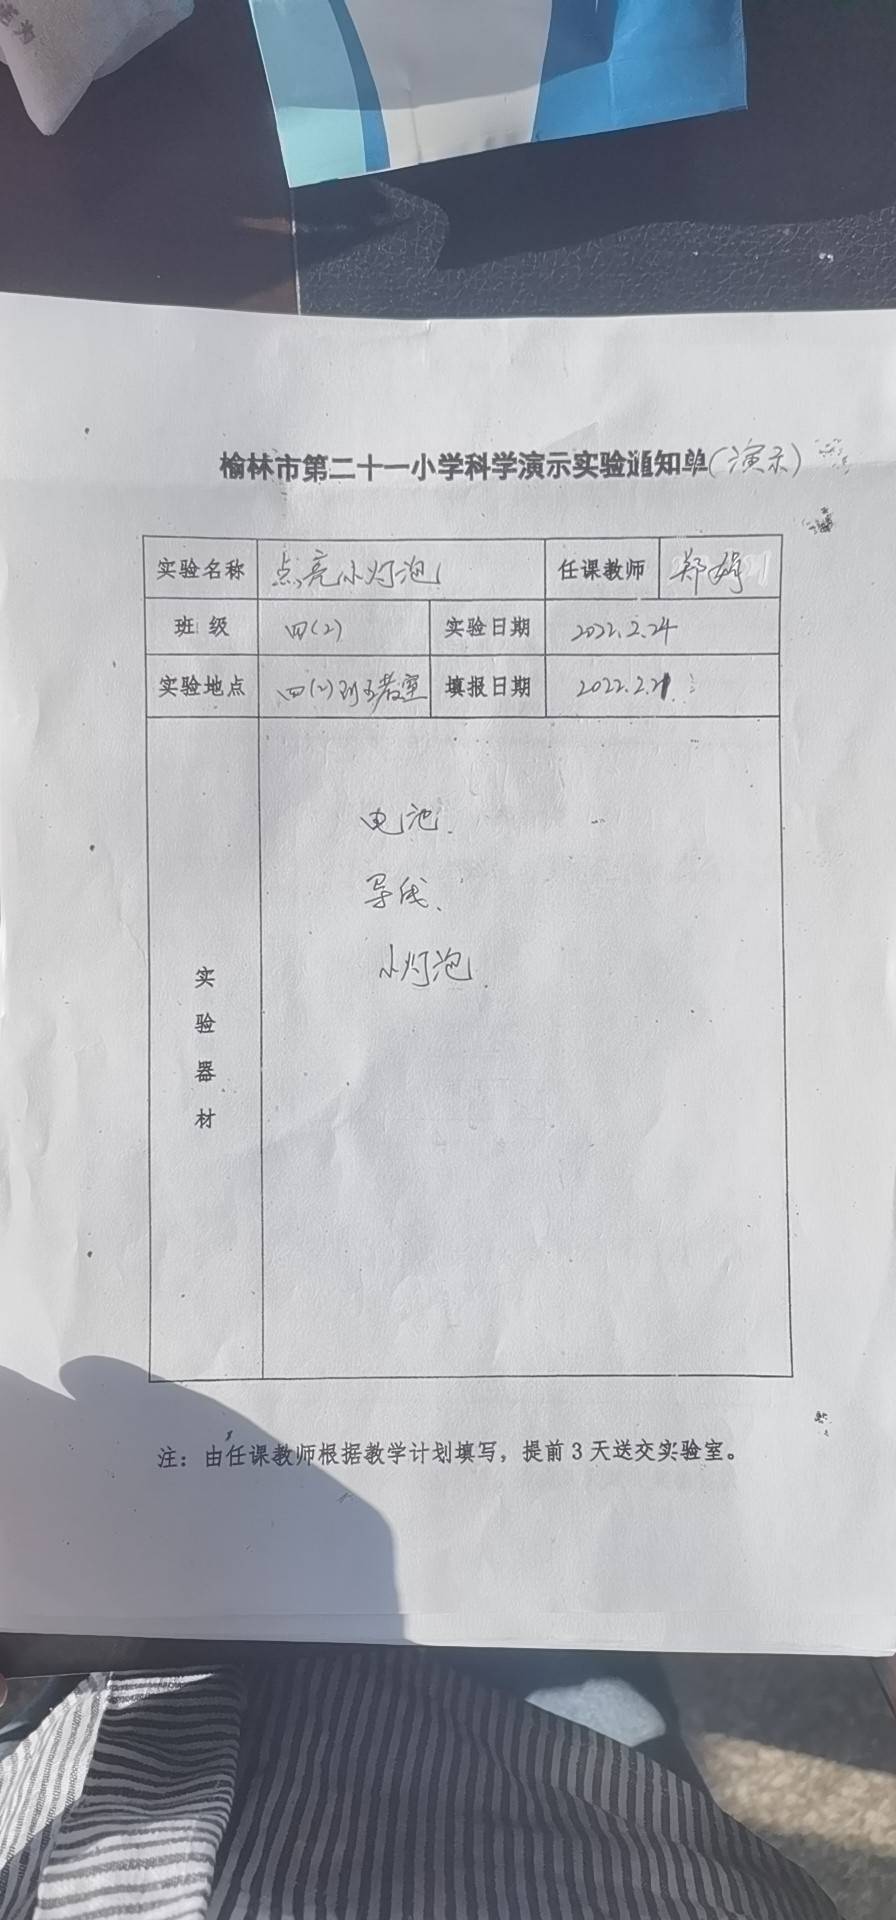 榆林市第二十一小学科学演示实验通知单(演示)
实验名称 点亮小灯泡 任课教师 郑娟
班 级 四(2) 实验日期 2022.2.24
实验地点 四(2)班教室 填报日期 2022.2.21
电池、
导线、
小灯泡
实
验
器
材
注：由任课教师根据教学计划填写，提前3天送交实验室。